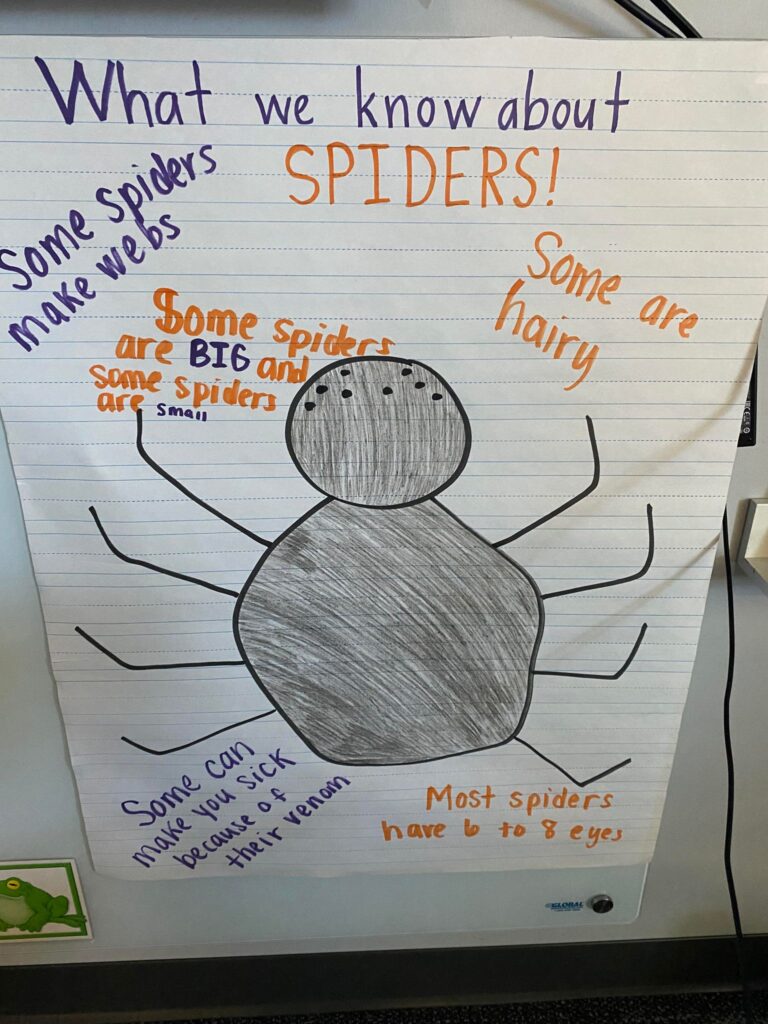 What we know about
SPIDERS!
Some spiders
make webs
Some are
hairy
Some spiders
are BIG and
some spiders
are small
Some can
make you sick
because of
their venom
Most spiders
have 6 to 8 eyes
GLOBAL